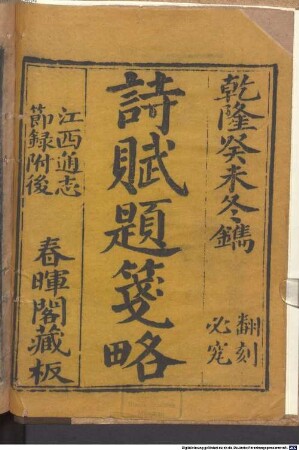 乾隆癸未冬鐫
翻刻
必究
詩賦題箋略
江西通志
節録附後
春暉閣藏板